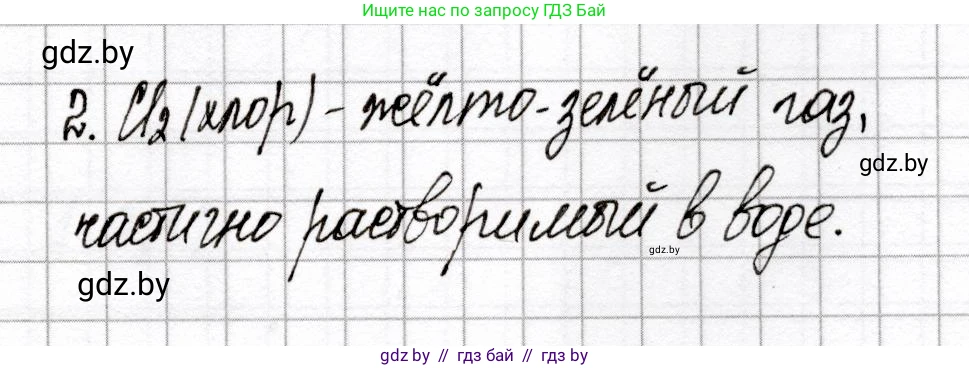 Ищите нас по запросу ГДЗ Бай
gdz.by
2. Cl₂ (хлор) - жёлто-зелёный газ,
gdz.by
частично растворимый в воде.
gdz.by
gdz.by
gdz.by // гдз бай // гдз by